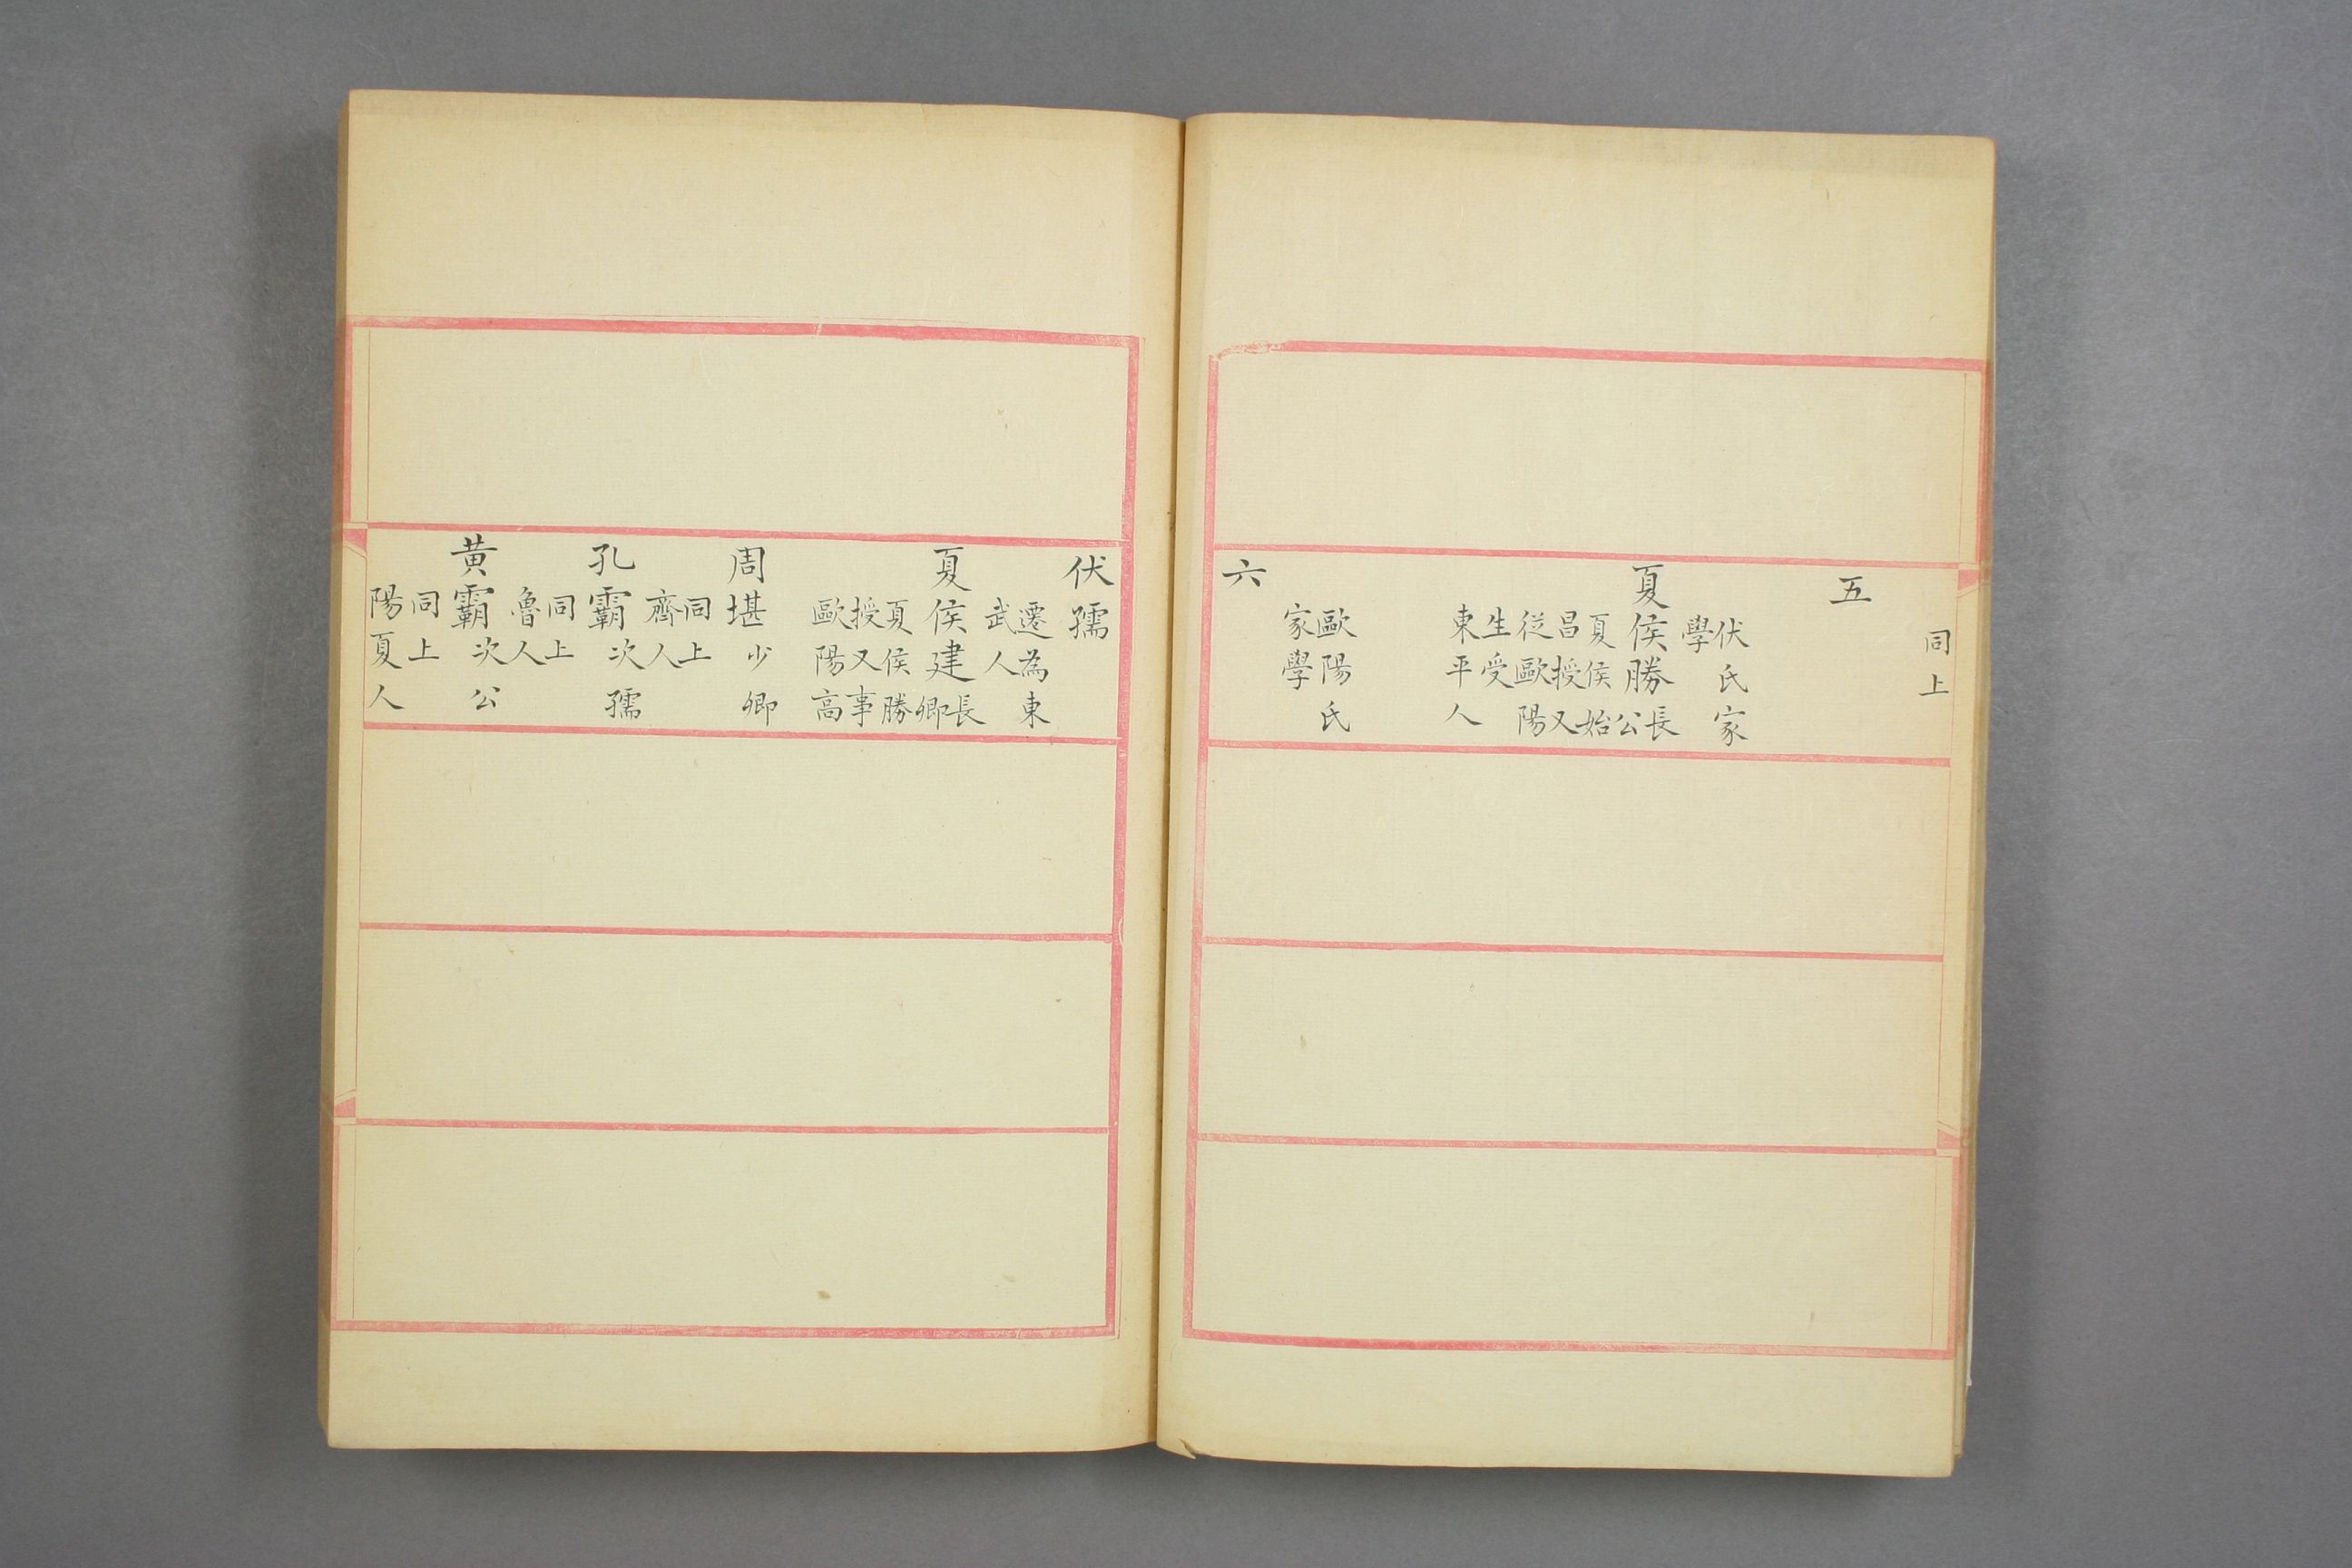 同上
五
伏氏家
學
夏侯勝長
公
夏侯始
昌授又
從歐陽
生受
東平人
歐陽氏
家學
六
伏孺
遷為東
武人
夏侯建長
卿
夏侯勝
授又事
歐陽高
周堪少卿
同上
齊人
孔霸次孺
同上
魯人
黃霸次公
同上
陽夏人